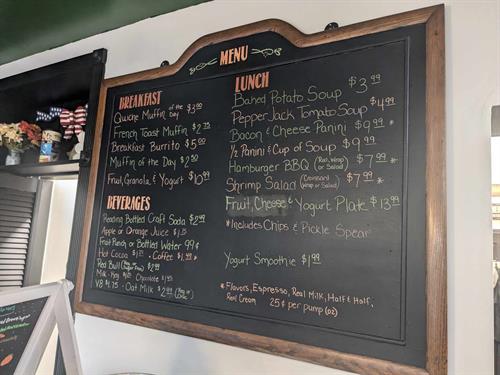 MENU
BREAKFAST
Quiche Muffin of the day $3.00
French Toast Muffin $2.75
Breakfast Burrito $5.00
Muffin of the Day $2.50
Fruit, Granola, & Yogurt $10.99
BEVERAGES
Reading Bottled Craft Soda $2.49
Apple or Orange Juice $1.
Fruit Punch or Bottled Water 99¢
Hot Cocoa - Coffee $1.*
Red Bull $2.99
Milk - Chocolate
V8 $1.75 - Oat Milk $2.
LUNCH
Baked Potato Soup $3.99
Pepper Jack Tomato Soup $4.99
Bacon & Cheese Panini $9.99 *
1/2 Panini & Cup of Soup $9.99
Hamburger BBQ (Roll, Wrap or Salad) $7.99 *
Shrimp Salad (Croissant Wrap or Salad) $7.99 *
Fruit, Cheese & Yogurt Plate $13.99
*Includes Chips & Pickle Spear
Yogurt Smoothie $1.99
* Flavors, Espresso, Real Milk, Half & Half,
Real Cream 25¢ per pump (oz)